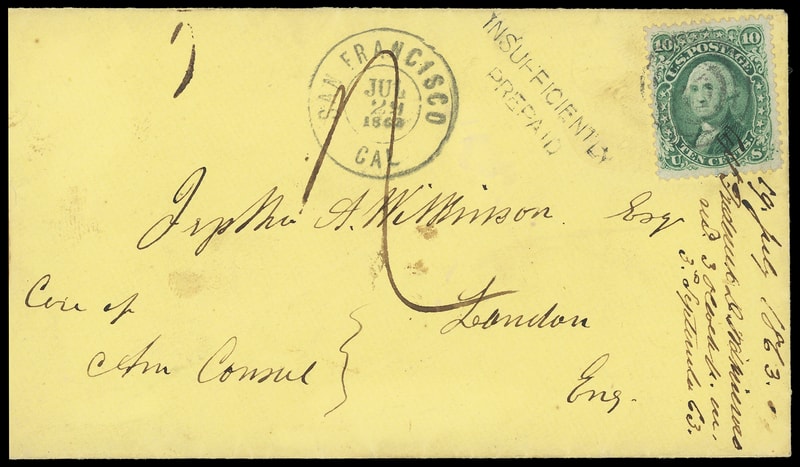 SAN FRANCISCO
JUL
29
1863
CAL
INSUFFICIENTLY
PREPAID
10 10
U.S. POSTAGE
TEN CENTS
U S
Jeptha A. Wilkinson Esq
Care of
Am Consul
London
Eng.
29. July 1863.
3 O'clock P. M.
3. September 63.